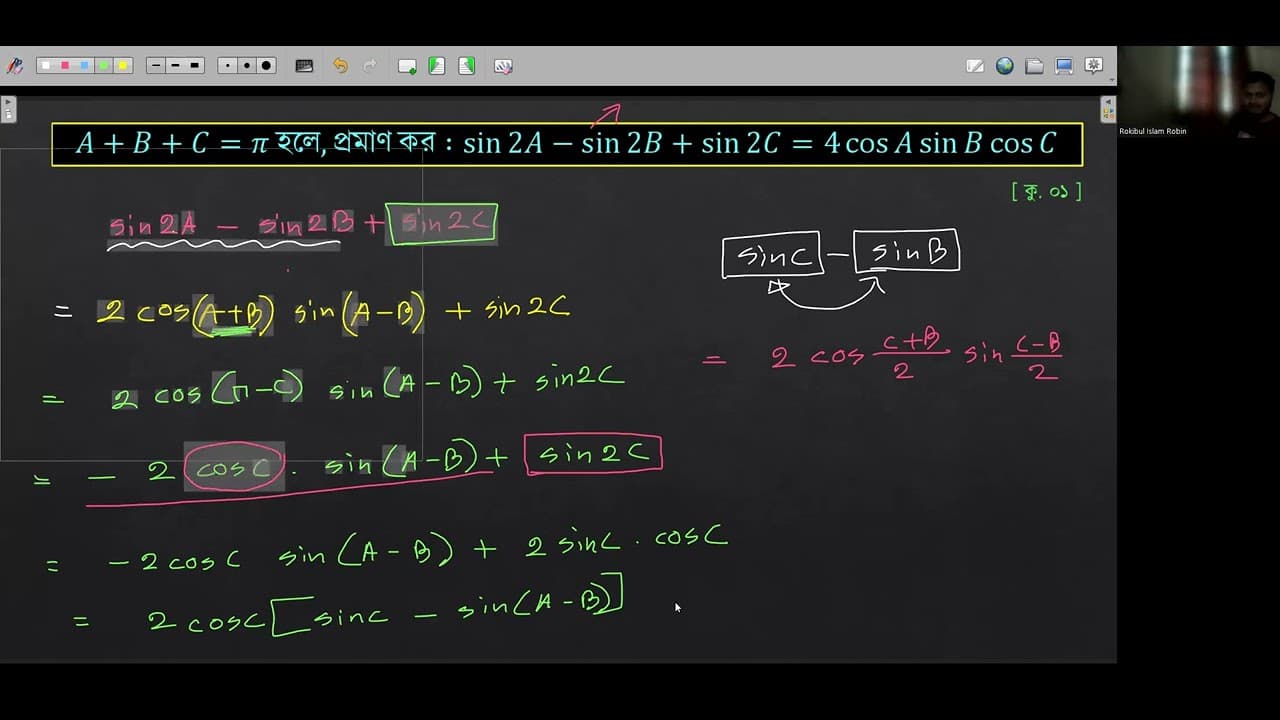 A + B + C = π হলে, প্রমাণ কর : sin 2A − sin 2B + sin 2C = 4 cos A sin B cos C
[ কু. ০১ ]
sin 2A − sin 2B + sin 2C
= 2 cos(A+B) sin(A−B) + sin 2C
= 2 cos(π−C) sin(A−B) + sin2C
= − 2 cosC . sin(A−B) + sin 2C
= −2 cosC sin(A−B) + 2 sinC . cosC
= 2 cosC [sinC − sin(A−B)]
sinC − sinB
= 2 cos C+B/2 sin C−B/2
Rokibul Islam Robin